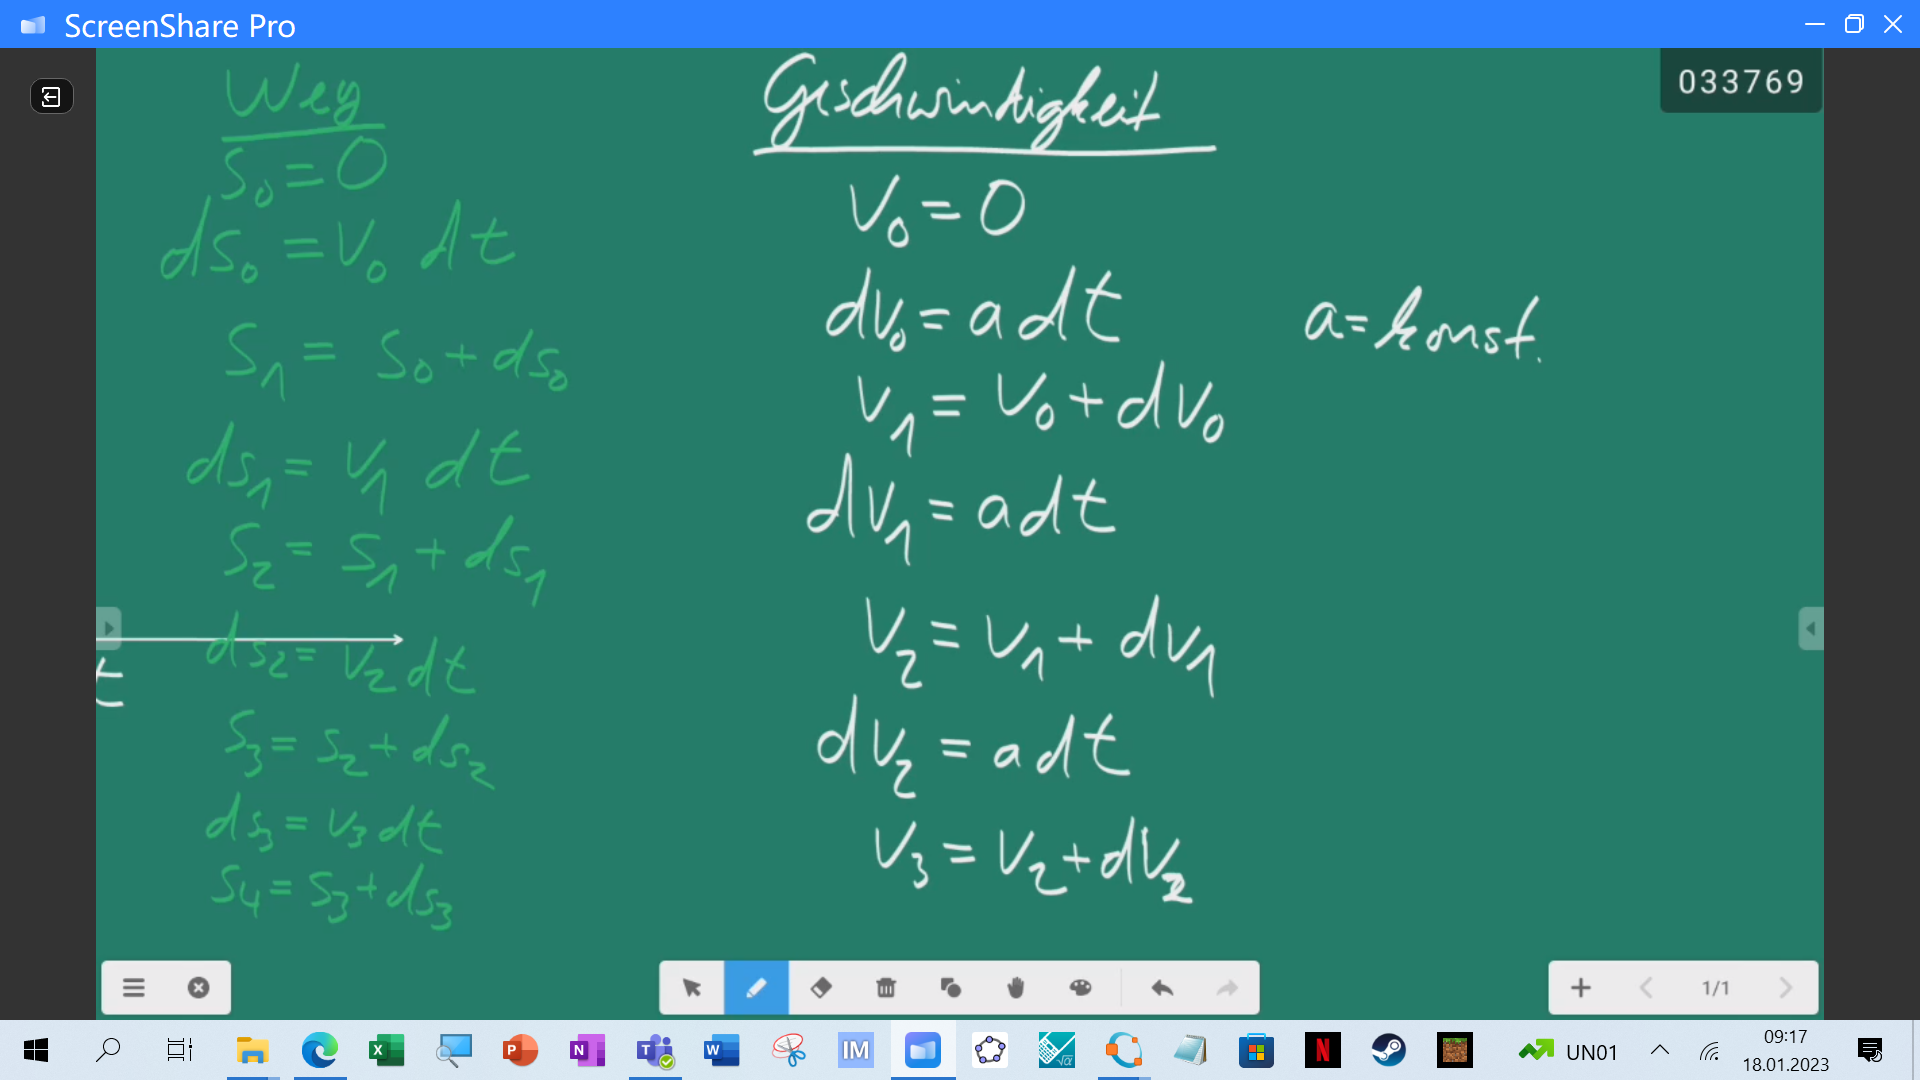 ScreenShare Pro
033769
Weg
s₀ = 0
ds₀ = v₀ dt
s₁ = s₀ + ds₀
ds₁ = v₁ dt
s₂ = s₁ + ds₁
ds₂ = v₂ dt
s₃ = s₂ + ds₂
ds₃ = v₃ dt
s₄ = s₃ + ds₃
t
Geschwindigkeit
v₀ = 0
dv₀ = a dt
a = konst.
v₁ = v₀ + dv₀
dv₁ = a dt
v₂ = v₁ + dv₁
dv₂ = a dt
v₃ = v₂ + dv₂
1/1
UN01
09:17
18.01.2023